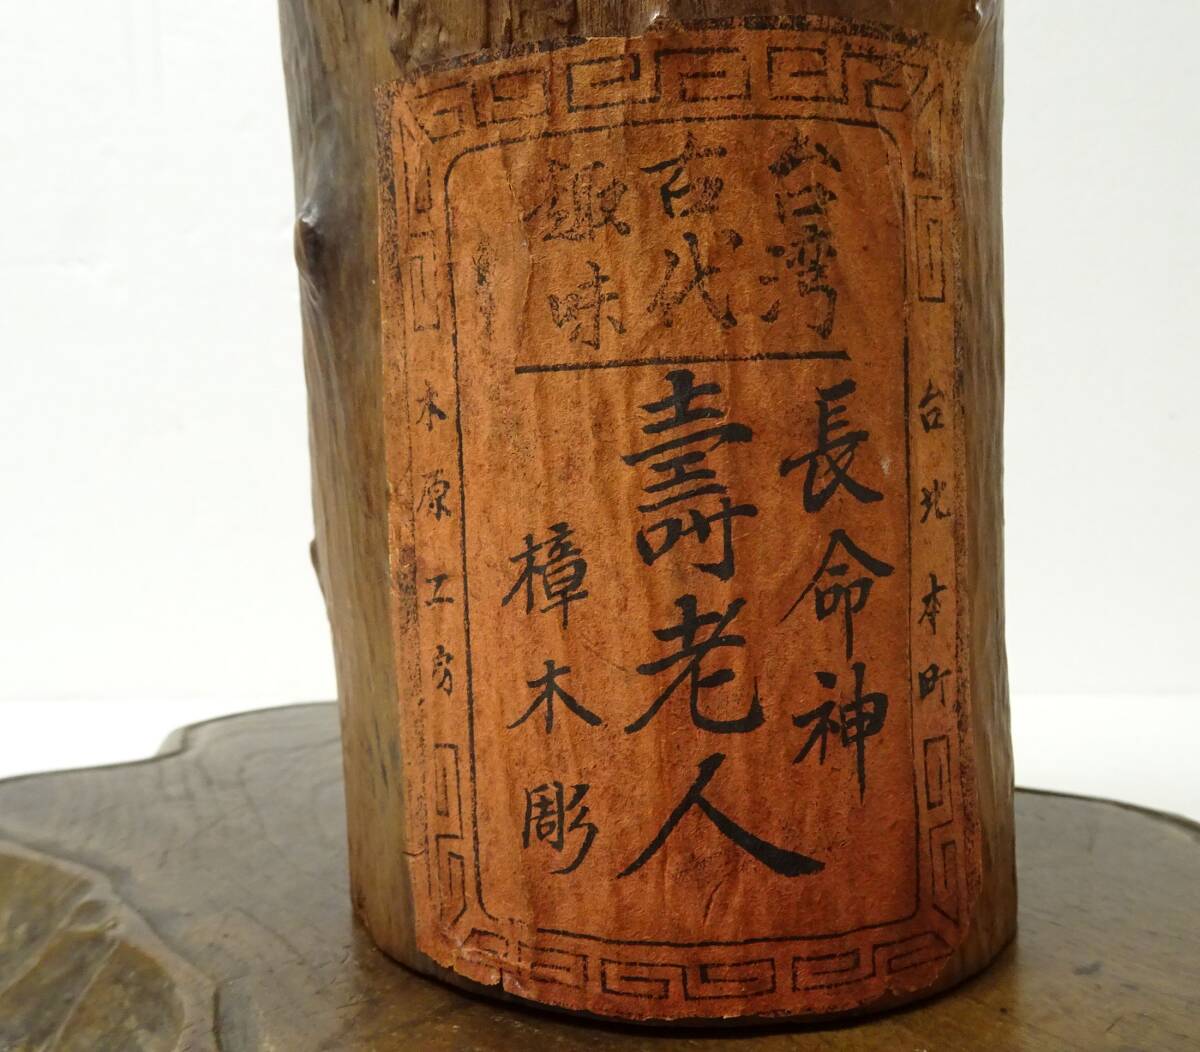 台湾
古代
趣味
長命神
壽老人
樟木彫
台北本町
木原工房